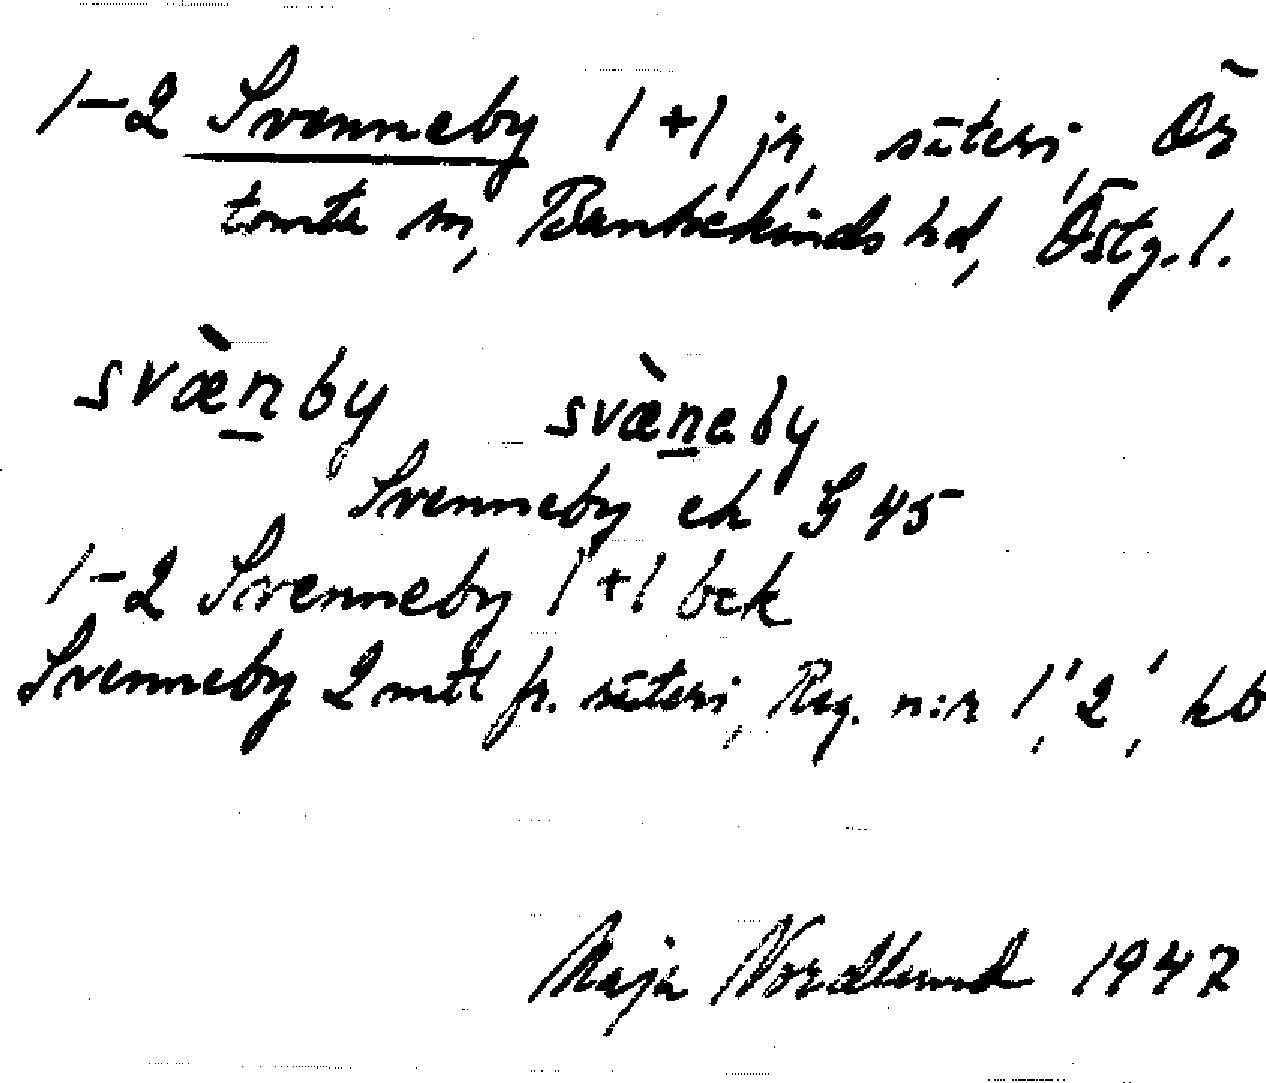 1-2 Svenneby 1+1 jr, säteri, Ör
tomta sn, Bankekinds hd, Östg. l.
svæ̀n̲by svæ̀n̲eby
Svenneby ek G 45
1-2 Svenneby 1+1 bek
Svenneby 2 mtl fr. säteri, Reg. n:r 1', 2', kb
Maja Nordlund 1947